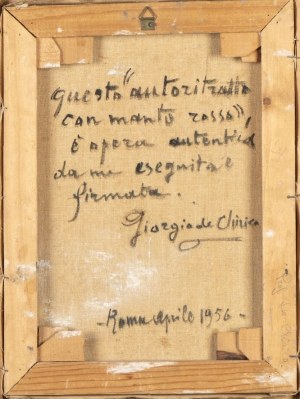 questo "autoritratto
con manto rosso",
è opera autentica
da me eseguita e
firmata.
Giorgio de Chirico
- Roma Aprile 1956 -